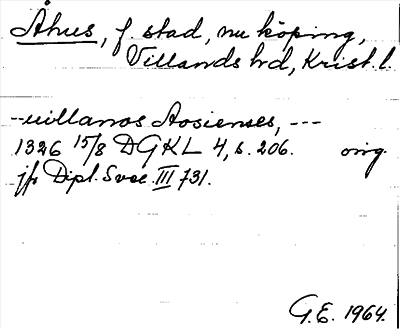 Åhus, f. stad, nu köping,
Villands hd, Krist. l.
-uillanos Aosienses, ---
1326 15/8 DGKL 4, s. 206. orig.
jfr Dipl. Svec. III 731.
G.E. 1964.